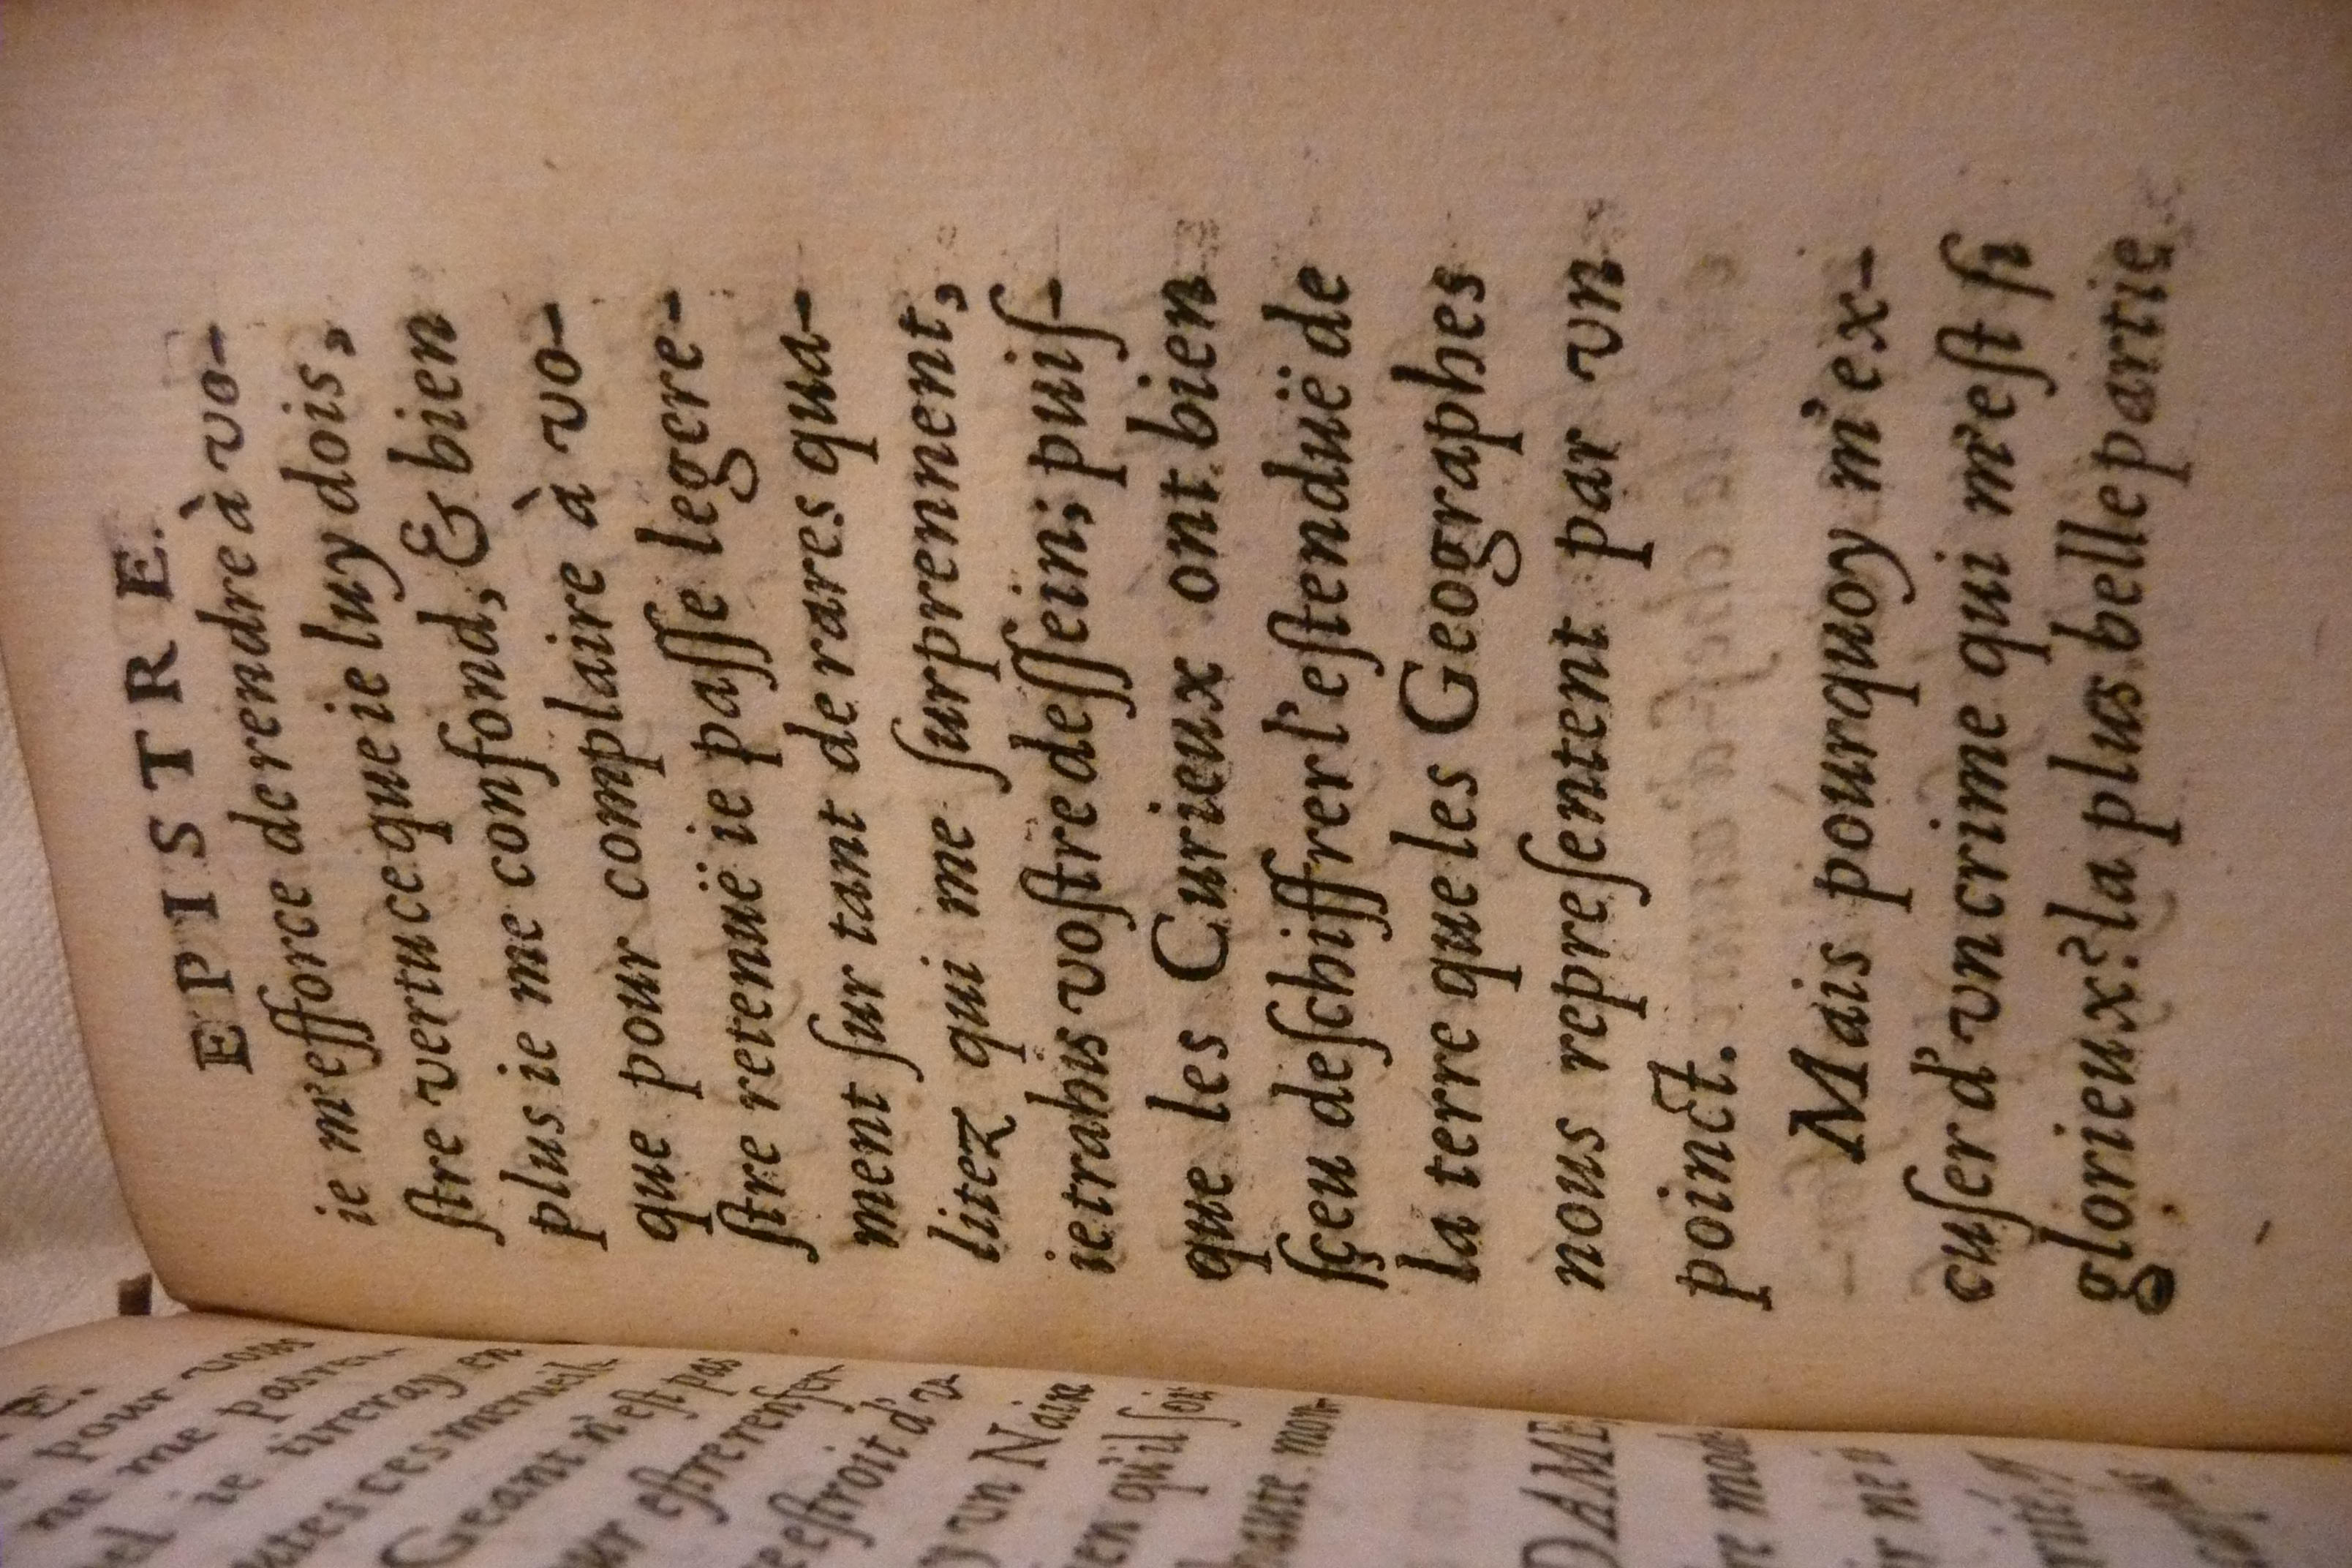 EPISTRE.
ie m'efforce de rendre à vo-
ſtre vertu ce que ie luy dois,
plus ie me confond, & bien
que pour complaire à vo-
ſtre retenuë ie paſſe legere-
ment ſur tant de rares qua-
litez qui me ſurprennent,
ie trahis voſtre deſſein; puiſ-
que les Curieux ont bien
ſçeu deſchiffrer l'eſtenduë de
la terre que les Geographes
nous repreſentent par vn
poinct.
Mais pourquoy m'ex-
cuſer d'vn crime qui m'eſt ſi
glorieux? la plus belle partie
E.
pour vous
ne me
ie tireray en
ces merueil-
Geant n'eſt pas
eſtre renfer-
eſtroit d'v-
vn Nain
en qu'il ſoit
haute mon-
DAME,